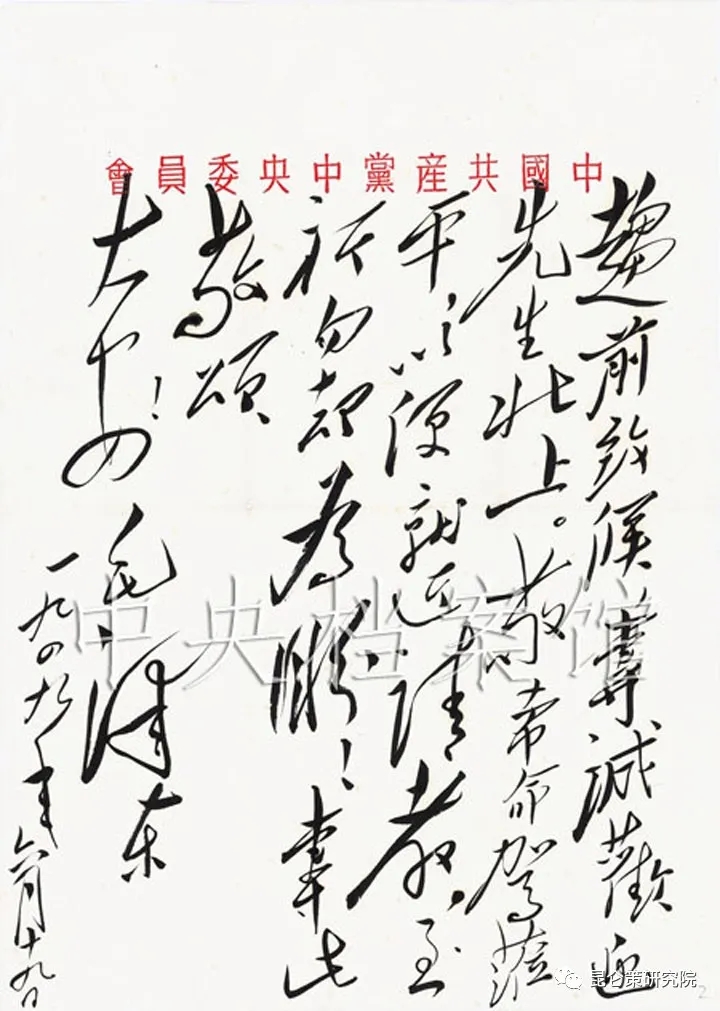 中國共産黨中央委員會
趨前致候專誠歡迎
先生北上。敬希命駕蒞
平、以便就近請教、至
祈勿却為盼！專此
敬頌
大安！
毛澤东
一九四九年六月十九日
中央档案馆
昆仑策研究院
2